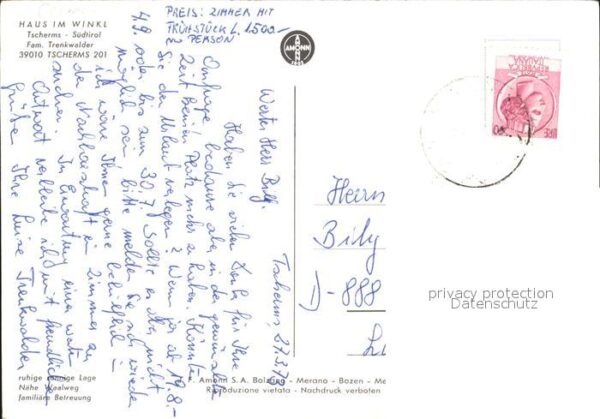 HAUS IM WINKL
Tscherms - Südtirol
Fam. Trenkwalder
39010 TSCHERMS 201
PREIS: ZIMMER MIT
FRÜHSTÜCK L. 1500.-
PERSON
AMONN
Tscherms, 27.3.73
Werter Herr
Haben Sie vielen Dank für Ihre
Anfrage, bedaure aber, in der gewünschten
Zeit keinen Platz mehr zu haben. Könnten
Sie den Urlaub verlegen? Wenn ja ab 19.8.-
4.9. oder bis zum 30.7. Sollte es Ihnen nicht
möglich sein, bitte melden Sie sich wieder
ich wäre Ihnen gerne behilflich in
der Nachbarschaft ein Zimmer zu
suchen. In Erwartung einer werten
Antwort verbleibe ich mit freundlichen
Grüßen Ihre Luise Trenkwalder
Herrn
Bily
D-888
privacy protection
Datenschutz
ruhige sonnige Lage
Nähe Waalweg
familiäre Betreuung
F. Amonn S.A. Bolzano - Merano - Bozen - Me
Riproduzione vietata - Nachdruck verboten